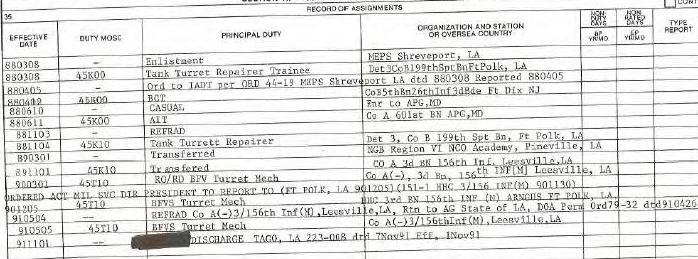 35 RECORD OF ASSIGNMENTS
EFFECTIVE DATE DUTY MOSC PRINCIPAL DUTY ORGANIZATION AND STATION OR OVERSEA COUNTRY NON-DUTY DAYS NON-RATED DAYS TYPE REPORT
BP YR/MO EP YR/MO
880308 — Enlistment MEPS Shreveport, LA
880308 45K00 Tank Turret Repairer Trainee Det3CoB199thSptBnFtPolk, LA
880405 — Ord to IADT per ORD 44-19 MEPS Shreveport LA dtd 880308 Reported 880405
880409 45K00 BCT CoB5thBn26thInf3dBde Ft Dix NJ
880610 — CASUAL Enr to APG,MD
880611 45K00 AIT Co A 601st BN APG,MD
881103 — REFRAD
881104 45K10 Tank Turrett Repairer Det 3, Co B 199th Spt Bn, Ft Polk, LA
890301 — Transferred NGB Region VI NCO Academy, Pineville, LA
891101 45K10 Transfered CO A 3d BN 156th Inf, Leesville, LA
900301 45T10 RO/RD BFV Turret Mech Co A(-), 3d Bn, 156th INF(M) Leesville, LA
ORDERED ACT MIL SVC DIR PRESIDENT TO REPORT TO (FT POLK, LA 901205)(151-1 HHC 3/156 INF(M) 901130)
901205 45T10 BFVS Turret Mech HHC 3rd BN 156th INF (M) ARNGUS FT POLK, LA
910504 — REFRAD Co A(-)3/156th Inf(M),Leesville,LA, Rtn to AG State of LA, DOA Perm Ord79-32 dtd910426
910505 45T10 BFVS Turret Mech Co A(-)3/156thInf(M),Leesville,LA
911101 — DISCHARGE TAGO, LA 223-008 dtd 7Nov91 Eff, 1Nov91